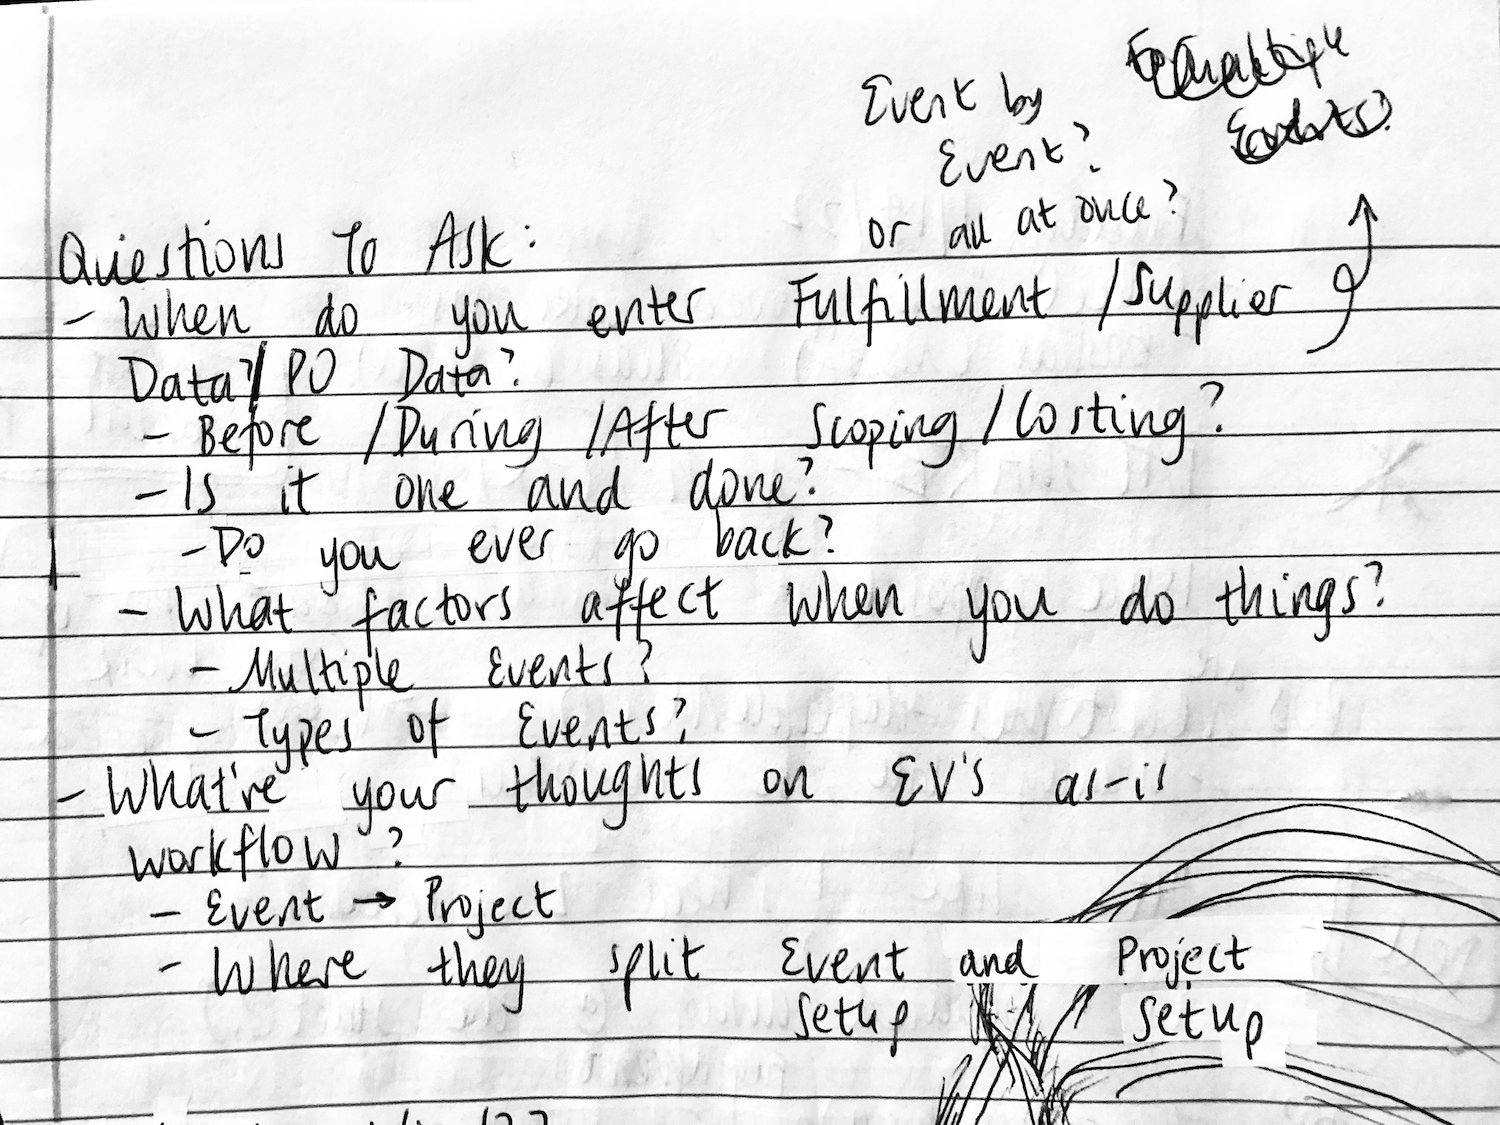 Event by
Event?
or all at once?
Questions To Ask:
- When do you enter Fulfillment / Supplier
Data?/ PO Data?
- Before / During / After Scoping / Costing?
- Is it one and done?
- Do you ever go back?
- What factors affect when you do things?
- Multiple Events?
- Types of Events?
- What're your thoughts on EV's as-is
workflow?
- Event → Project
- Where they split Event and Project
setup setup